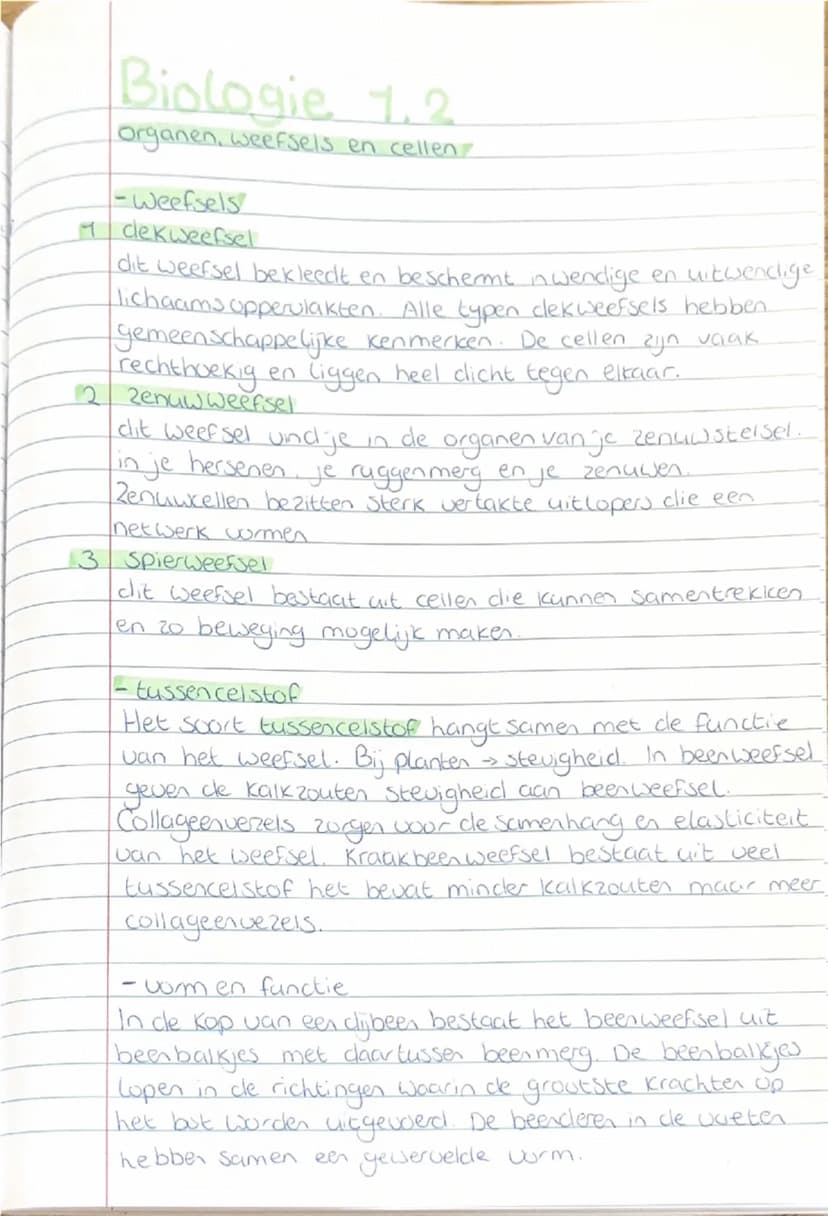 Biologie 1.2
organen, weefsels en cellen
- weefsels
1 dekweefsel
dit weefsel bekleedt en beschermt inwendige en uitwendige
lichaamsoppervlakten. Alle typen dekweefsels hebben
gemeenschappelijke kenmerken. De cellen zijn vaak
rechthoekig en liggen heel dicht tegen elkaar.
2 zenuwweefsel
dit weefsel vind je in de organen van je zenuwstelsel.
in je hersenen, je ruggenmerg en je zenuwen.
Zenuwcellen bezitten sterk vertakte uitlopers die een
netwerk vormen
3 spierweefsel
dit weefsel bestaat uit cellen die kunnen samentrekken
en zo beweging mogelijk maken.
- tussencelstof
Het soort tussencelstof hangt samen met de functie
van het weefsel. Bij planten → stevigheid. In beenweefsel
geven de kalkzouten stevigheid aan beenweefsel.
Collageenvezels zorgen voor de samenhang en elasticiteit
van het weefsel. Kraakbeenweefsel bestaat uit veel
tussencelstof het bevat minder kalkzouten maar meer
collageenvezels.
- vorm en functie
In de kop van een dijbeen bestaat het beenweefsel uit
beenbalkjes met daartussen beenmerg. De beenbalkjes
lopen in de richtingen waarin de grootste krachten op
het bot worden uitgevoerd. De beenderen in de voeten
hebben samen een gewervelde vorm.